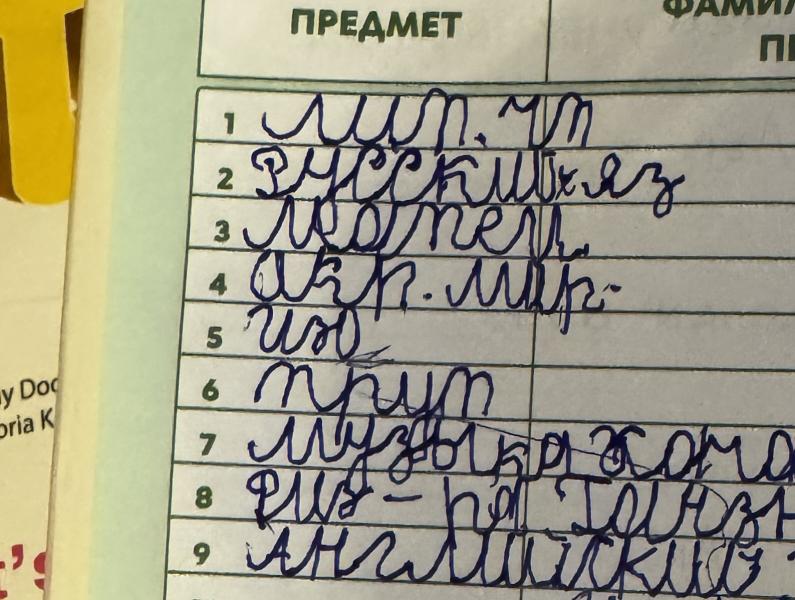 ПРЕДМЕТ
ФАМИЛ
1 лит. чт
2 Русский яз
3 Матем
4 Окр. мир.
5 Изо
6 труд
7 музыка
8 Физ-ра
9 Английский
y Doc
oria K
t's